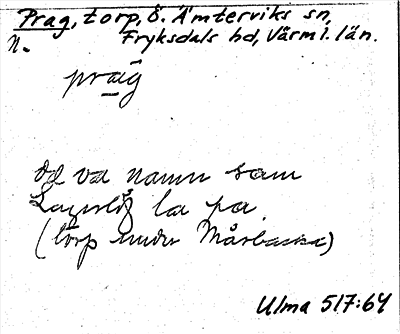 Prag, torp, Ö. Ämterviks sn,
n. Fryksdals hd, Värml. län.
prāg
dä va namn sam
Lagerlöf la pa
(torp under Mårbacka)
Ulma 517:64